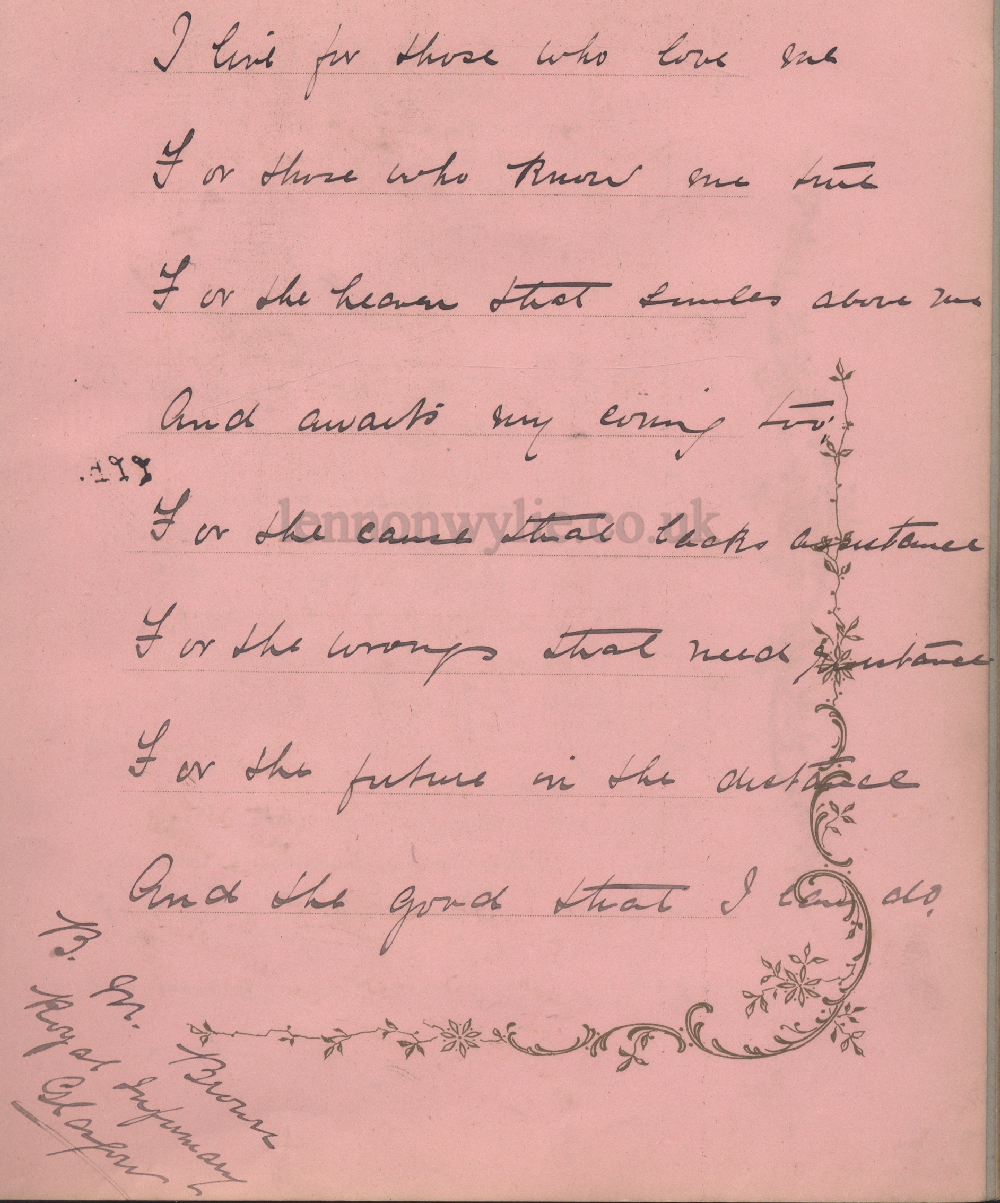 I live for those who love me
For those who know me true
For the heaven that smiles above me
And awaits my coming too,
lennonwylie.co.uk
For the cause that lacks assistance
For the wrongs that need resistance
For the future in the distance
And the good that I can do.
B. M. Brown
Royal Infirmary
Glasgow